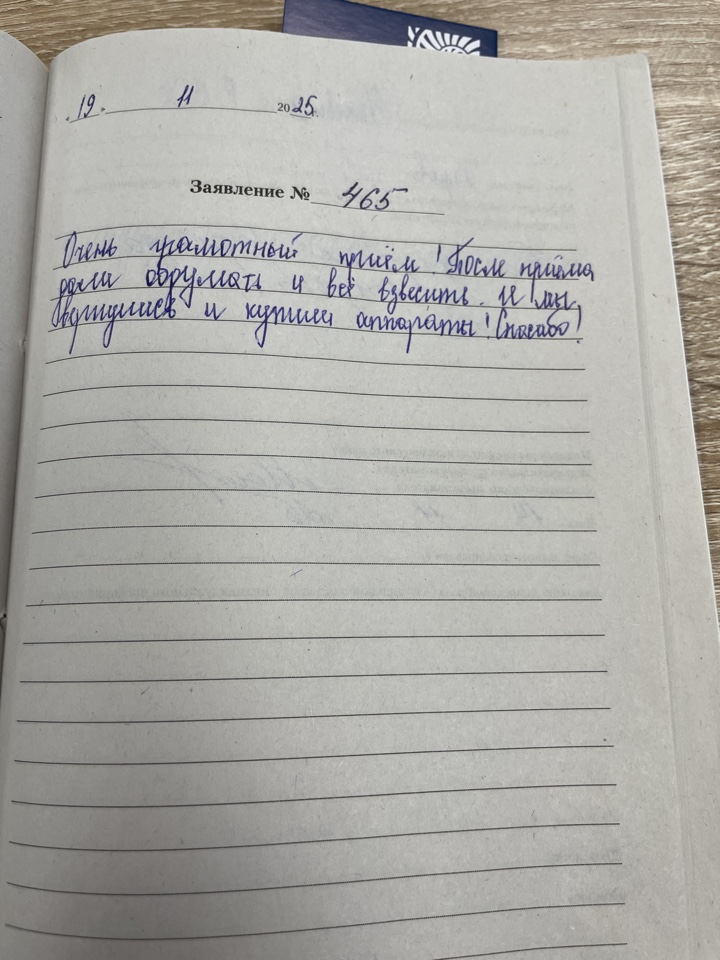 19. 11 2025г.
Заявление № 465
Очень грамотный приём! После приёма
дали обдумать и всё взвесить. И мы,
вернулись и купили аппараты! Спасибо!